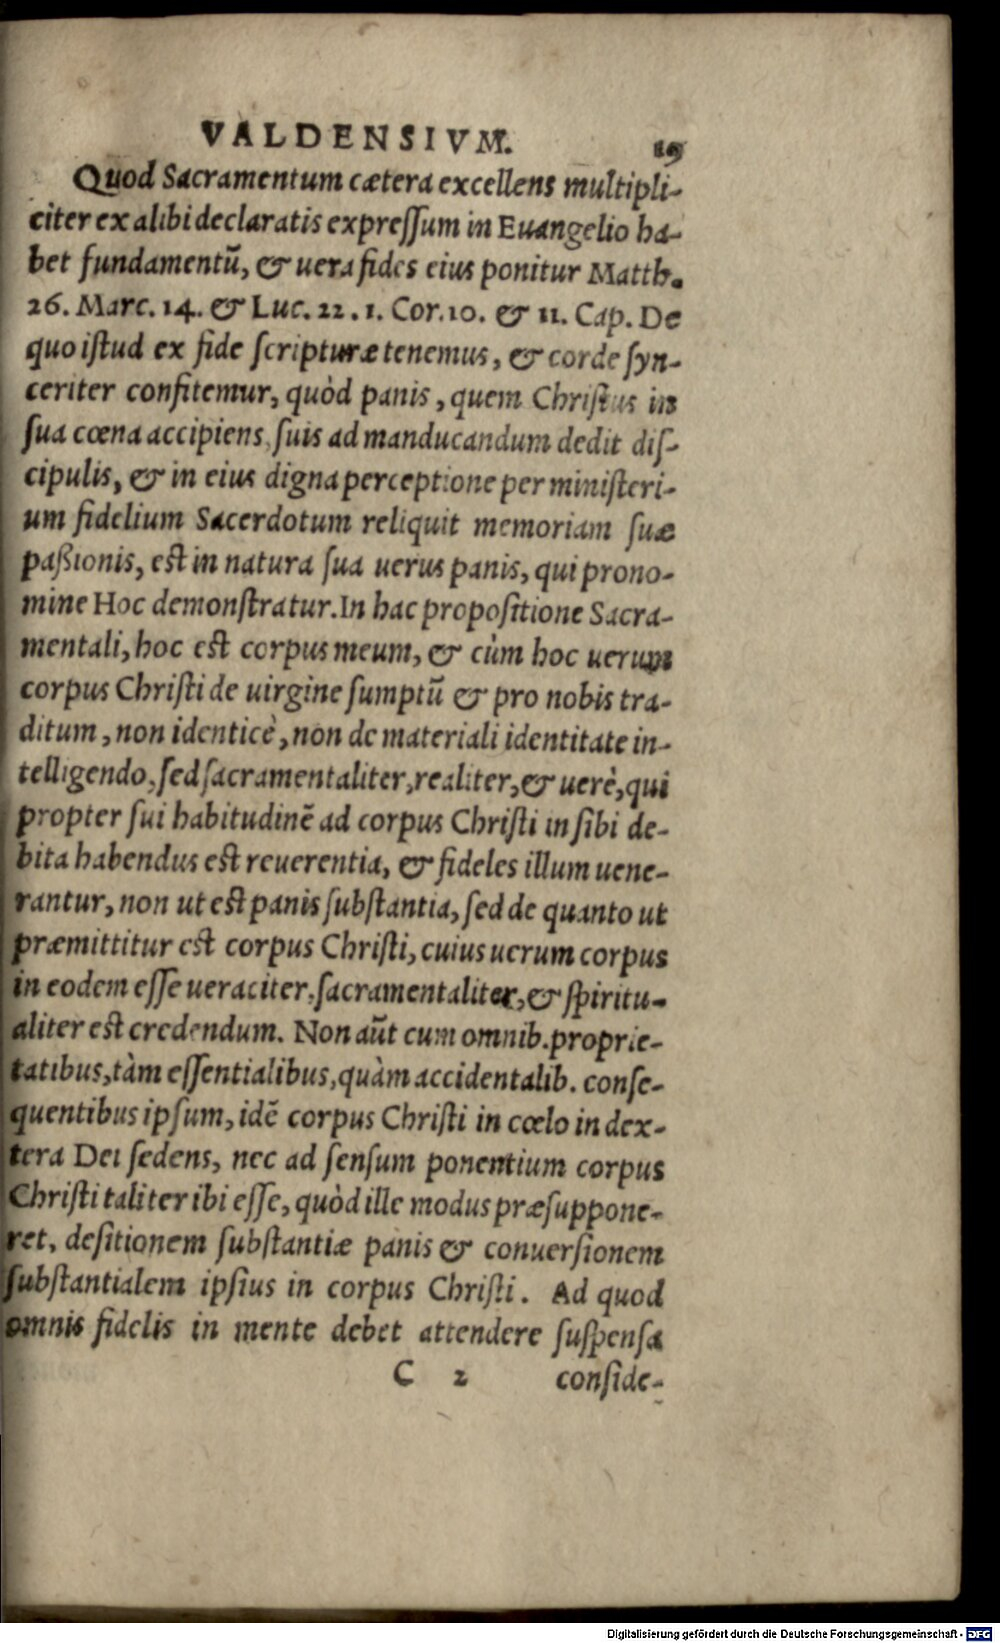 VALDENSIVM. 19
Quod Sacramentum cætera excellens multipli-
citer ex alibi declaratis expreſſum in Euangelio ha-
bet fundamentũ, & uera fides eius ponitur Matth.
26. Marc. 14. & Luc. 22. 1. Cor. 10. & 11. Cap. De
quo iſtud ex fide ſcripturæ tenemus, & corde ſyn-
ceriter confitemur, quòd panis, quem Chriſtus in
ſua cœna accipiens, ſuis ad manducandum dedit diſ-
cipulis, & in eius digna perceptione per miniſteri-
um fidelium Sacerdotum reliquit memoriam ſuæ
paßionis, eſt in natura ſua uerus panis, qui prono-
mine Hoc demonſtratur. In hac propoſitione Sacra-
mentali, hoc eſt corpus meum, & cùm hoc uerum
corpus Chriſti de uirgine ſumptũ & pro nobis tra-
ditum, non identicè, non de materiali identitate in-
telligendo, ſed ſacramentaliter, realiter, & uerè, qui
propter ſui habitudinẽ ad corpus Chriſti in ſibi de-
bita habendus eſt reuerentia, & fideles illum uene-
rantur, non ut eſt panis ſubſtantia, ſed de quanto ut
præmittitur eſt corpus Chriſti, cuius uerum corpus
in eodem eſſe ueraciter, ſacramentaliter, & ſpiritu-
aliter eſt credendum. Non aũt cum omnib. proprie-
tatibus, tàm eſſentialibus, quàm accidentalib. conſe-
quentibus ipſum, idẽ corpus Chriſti in cœlo in dex-
tera Dei ſedens, nec ad ſenſum ponentium corpus
Chriſti taliter ibi eſſe, quòd ille modus præſuppone-
ret, deſitionem ſubſtantiæ panis & conuerſionem
ſubſtantialem ipſius in corpus Chriſti. Ad quod
omnis fidelis in mente debet attendere ſuſpenſa
C 2 conſide-
Digitalisierung gefördert durch die Deutsche Forschungsgemeinschaft - DFG